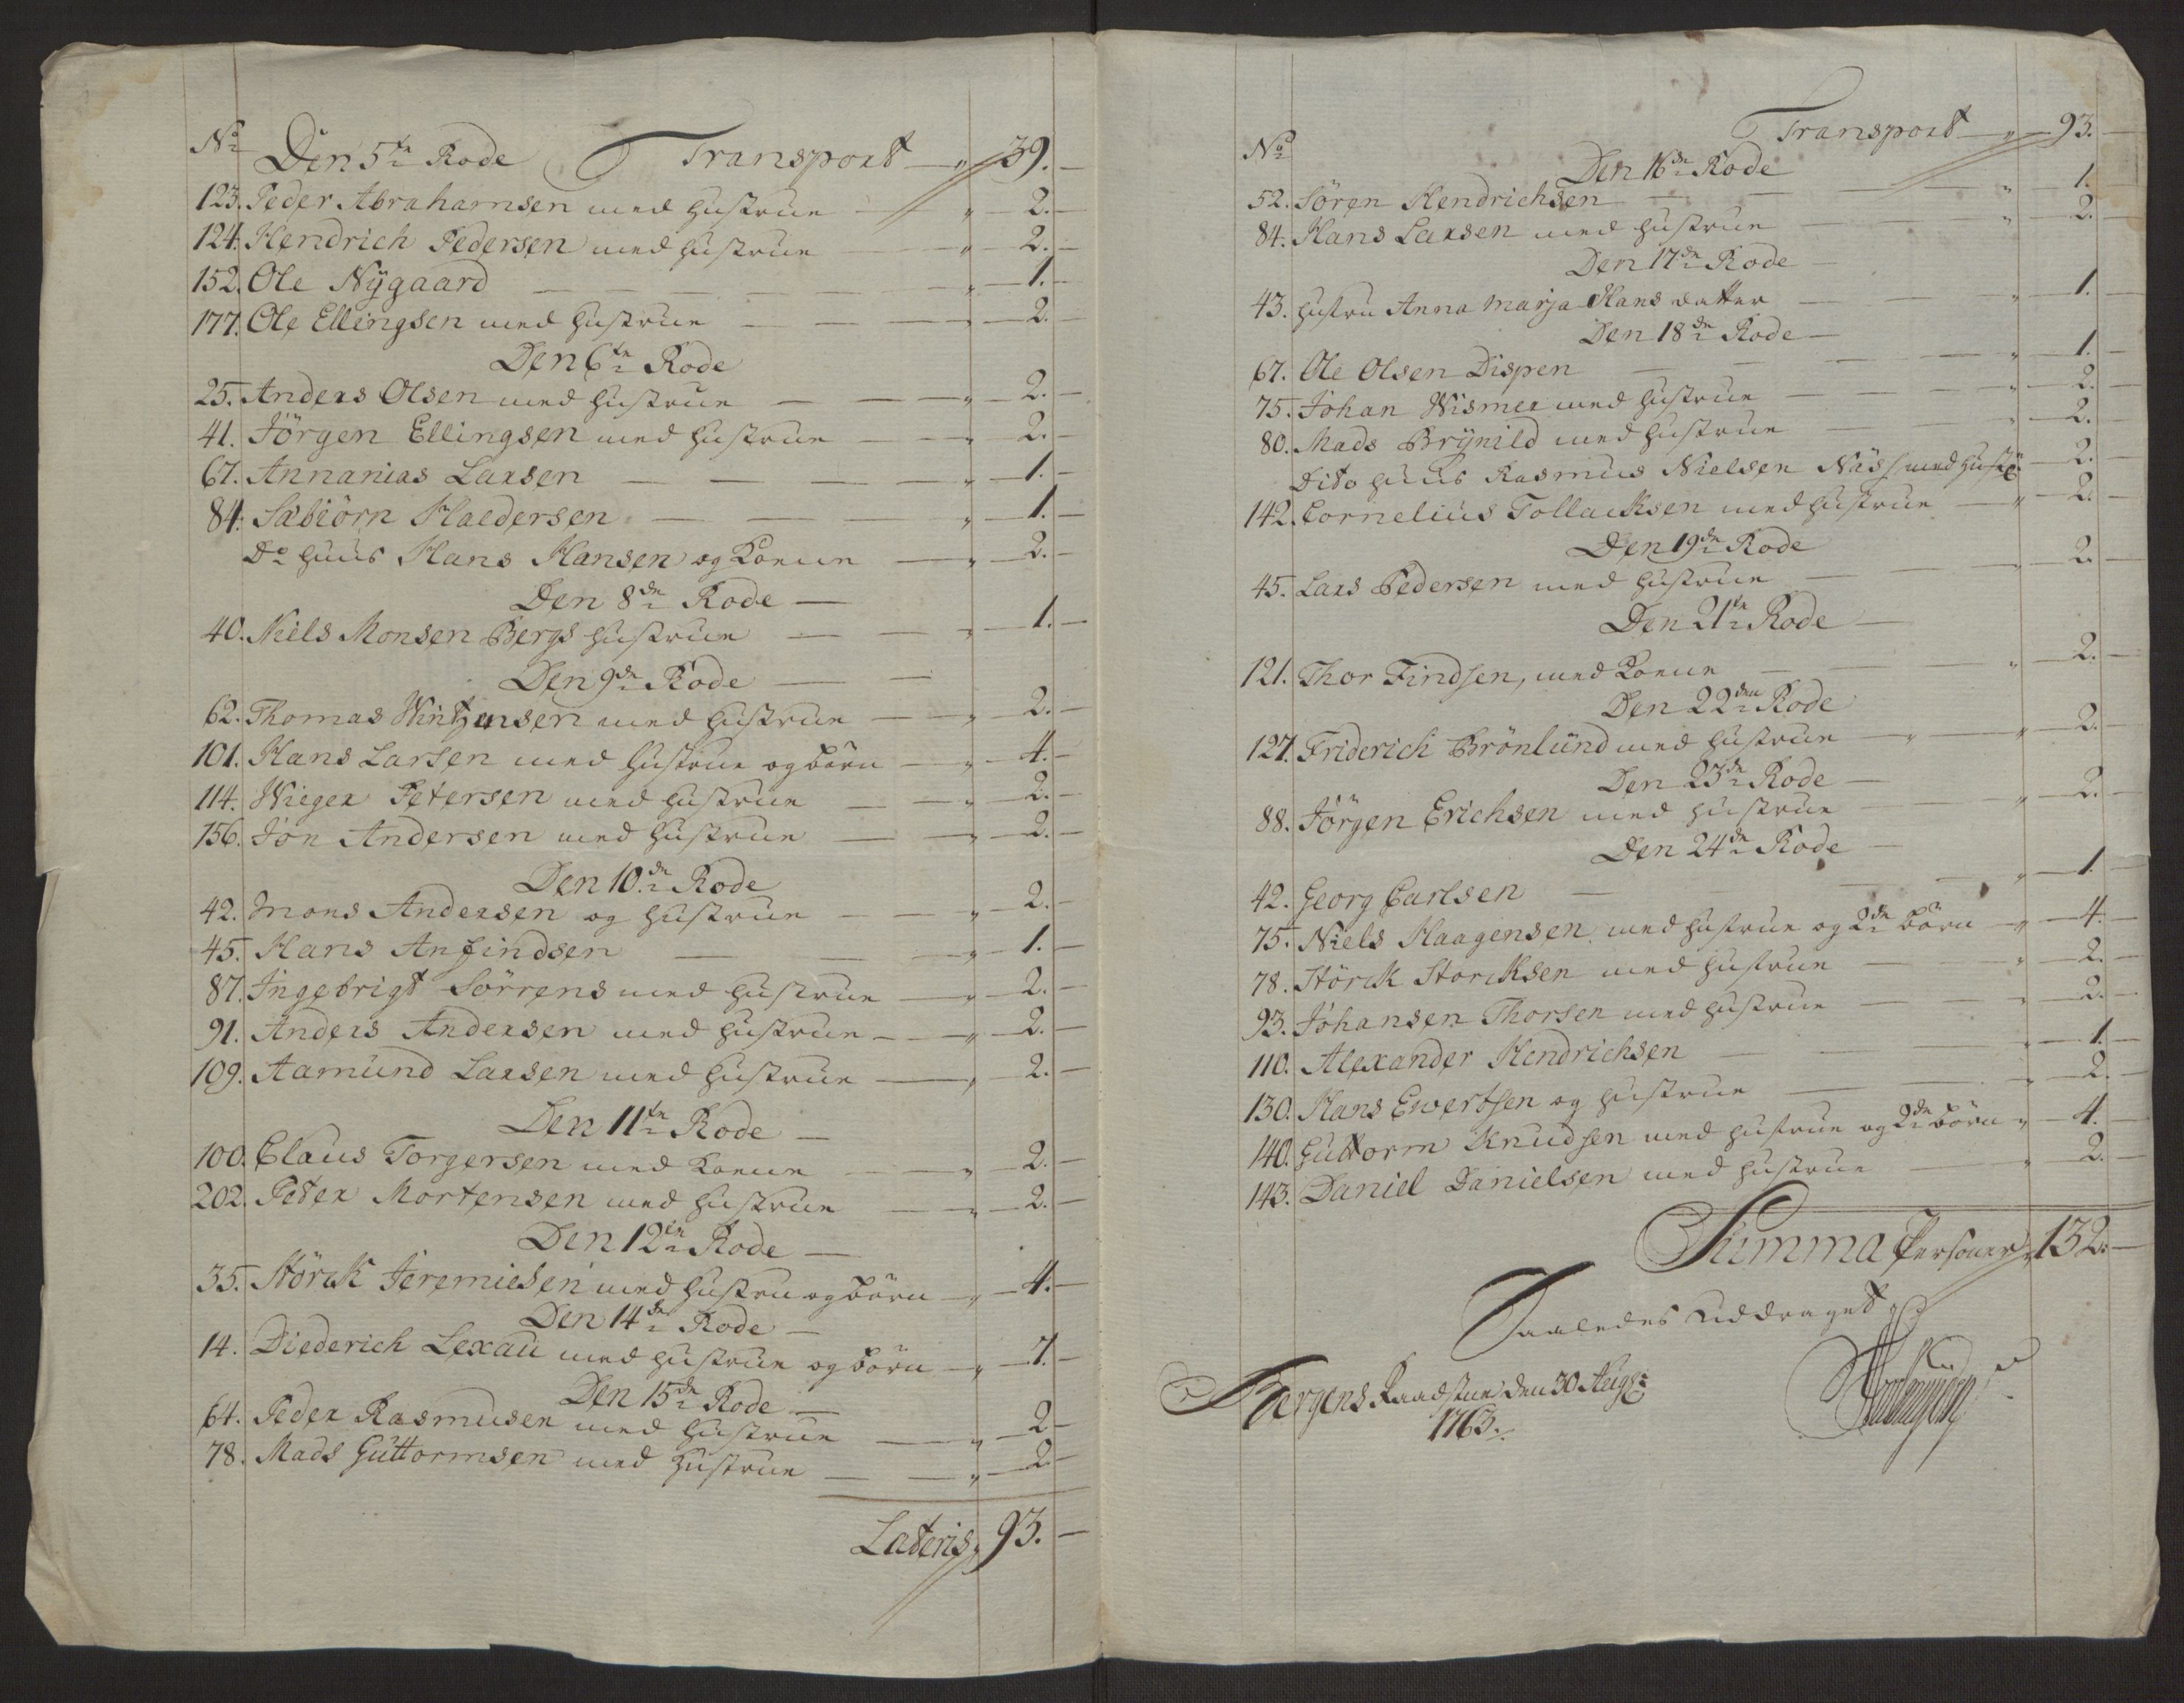 No Den 5te Rode Transport „ 39.
123. Peder Abrahamsen med Hustrue „ 2.
124. Hendrich Pedersen med Hustrue „ 2.
152. Ole Nÿgaard „ 1.
177. Ole Ellingsen med Hustrue „ 2.
Den 6te Rode
25. Anders Olsen med Hustrue „ 2.
41. Jörgen Ellingsen med Hustrue „ 2.
67. Annanias Larsen „ 1.
84. Sæbiörn Haldersen „ 1.
Do Huus Hans Hansen og Konne „ 2.
Den 8de Rode
40. Niels Monsen Bergs Hustrue „ 1.
Den 9de Rode
62. Thomas Wintzensen med Hustrue „ 2.
101. Hans Larsen med Hustrue og börn „ 4.
114. Wieger Petersen med Hustrue „ 2.
156. Jon Andersen med Hustrue „ 2.
Den 10de Rode
42. Mons Andersen og Hustrue „ 2.
45. Hans Anfindsen „ 1.
87. Ingebrigt Sörrens med Hustrue „ 2.
91. Anders Andersen med Hustrue „ 2.
109. Aamund Larsen med Hustrue „ 2.
Den 11te Rode
100. Claus Torgersen med Konne „ 2.
202. Peter Mortensen med Hustrue „ 2.
Den 12te Rode
35. Störck Jeremiesen med Hustru og börn „ 4.
Den 14de Rode
14. Diederich Lexau med Hustrue og börn „ 7.
Den 15de Rode
64. Peder Rasmusen med Hustrue „ 2
78. Mads Guttormsen med Hustrue „ 2.
Lateris „ 93.
No Transport „ 93.
Den 16de Rode
52. Sören Hendrichsen „ 1.
84. Hans Larsen med Hustrue „ 2.
Den 17de Rode
43. Hustru Anna Marja Hans datter „ 1.
Den 18de Rode
67. Ole Olsen Dispen „ 1.
75. Johan Wismer med Hustrue „ 2.
80. Mads Brÿnild med Hustrue „ 2.
Dito Huus Rasmus Nielsen Näss med Hust: 2.
142. Cornelius Tollacksen med Hustrue „ 2.
Den 19de Rode
45. Lars Pedersen med Hustrue „ 2.
Den 21te Rode
121. Thor Findsen, med Konne „ 2.
Den 22den Rode
127. Friderich Brönlund med Hustrue „ 2.
Den 23de Rode
88. Jörgen Erichsen med Hustrue „ 2.
Den 24de Rode
42. Georg Carlsen „ 1.
75. Niels Haagensen med Hustrue og 2de börn „ 4.
78. Störck Storcksen med Hustrue „ 2.
93. Johansen Thorsen med Hustrue „ 2.
110. Alexander Hendrichsen „ 1.
130. Hans Ewertsen og Hustrue „ 2.
140. Guttorm Knudsen med Hustrue og 2de börn „ 4.
143. Daniel Danielsen med Hustrue „ 2.
Summa Personer „ 132.
Saaledes uddraget
Bergens Raadstue den 30 Aug:
1763.